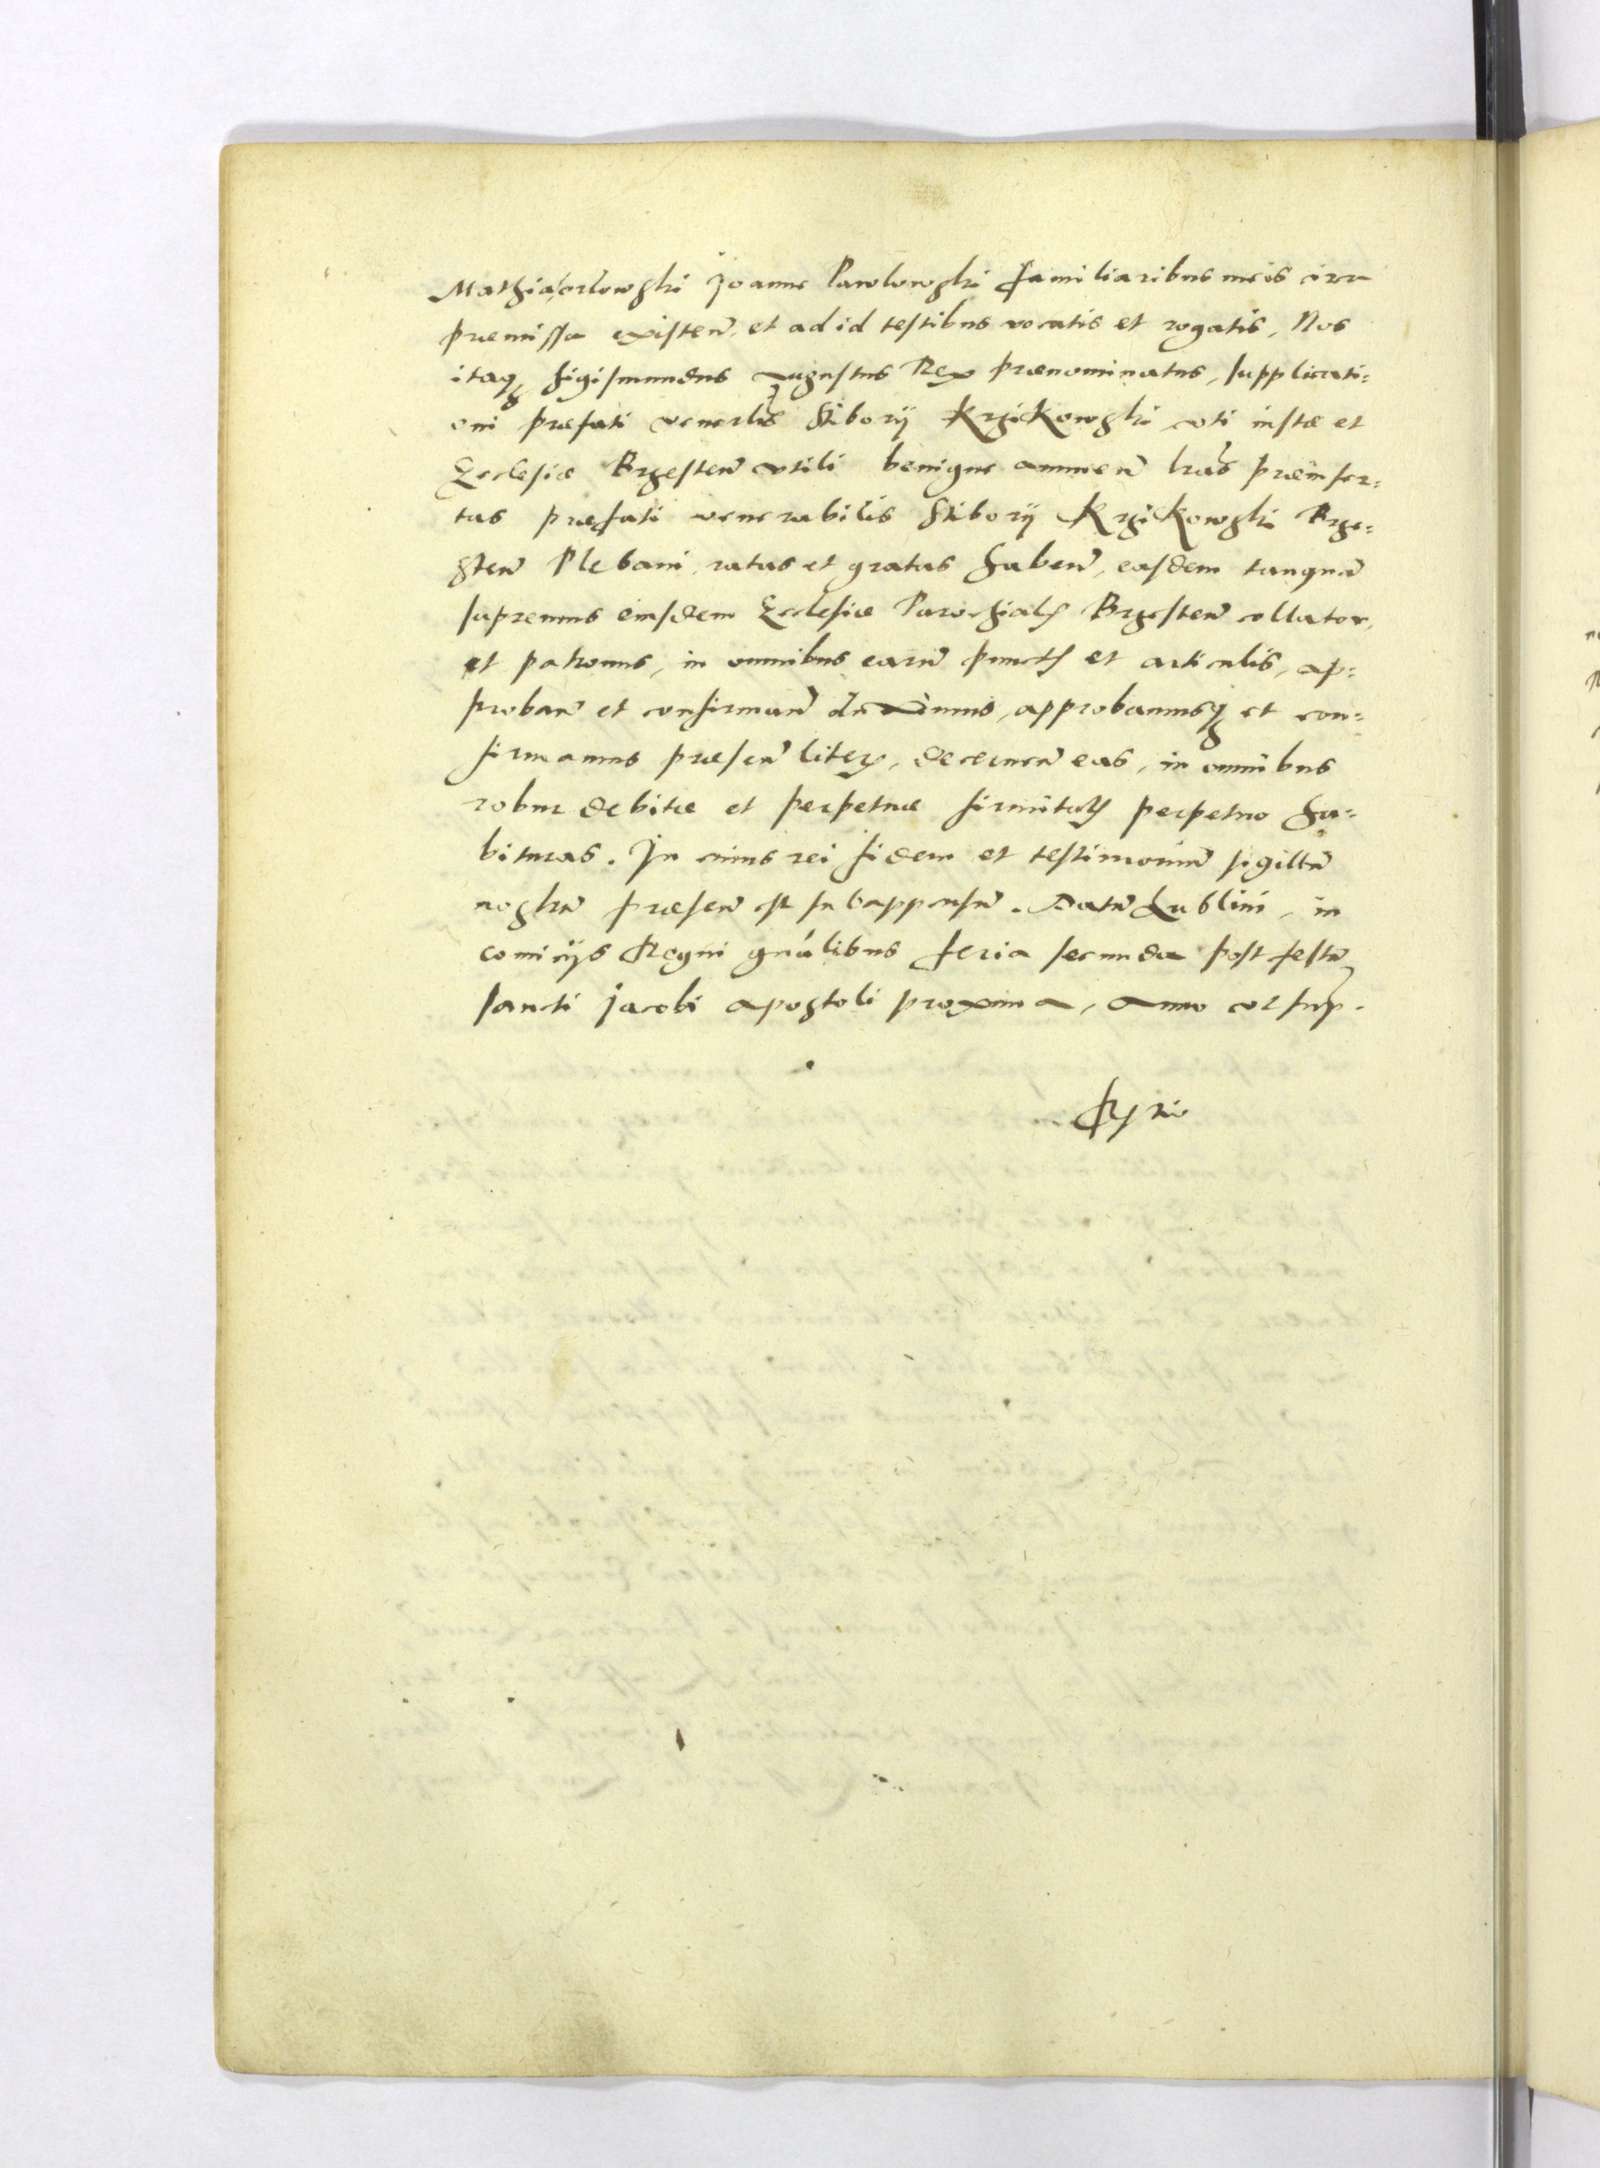 Mathia orlowski Joanne Pawlowski familiaribus meis circa
præmissa existen̄. et ad id testibus vocatis et rogatis, Nos
itaqꝫ Sigismundus Augustus Rex prænominatus, supplicati=
oni præfati venerlis Stiborij KrziKowski, vti iustæ et
Ecclesiæ Brzesten̄ vtili benigne annuen̄ lrās præinser=
tas præfati venerabilis Stiborij KrziKowski Brze=
sten̄ Plebani, ratas et gratas haben̄, easdem tanquā
supremus eiusdem Ecclesiæ Parochialꝭ Brzesten̄ collator,
et patronus, in omnibus earū punctꝭ et articulis, ap=
proban̄ et confirman̄ duximus, approbamusqꝫ et con=
firmamus præsen̄ literꝭ, decernen̄ eas, in omnibus
robur debitæ et perpetuæ firmitatꝭ perpetuo ha=
bituras. In cuius rei fidem et testimoniū sigillū
nostrū præsen̄ est subappensū. Datū Lublini, in
comicijs Regni gnālibus feria secunda post festū
sancti Jacobi apostoli proxima, Anno vt sup.